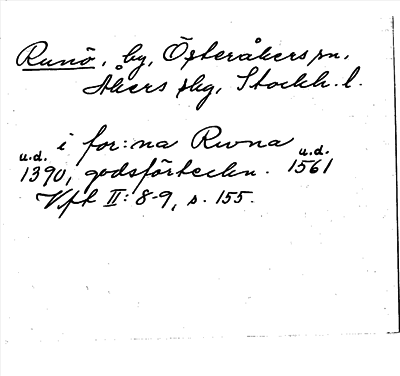 Runö, by, Österåkers sn,
Åkers skg, Stockh. l.
i for:na Rwna
u.d. 1390, godsförteckn. u.d. 1561
Vft II: 8-9, s. 155.